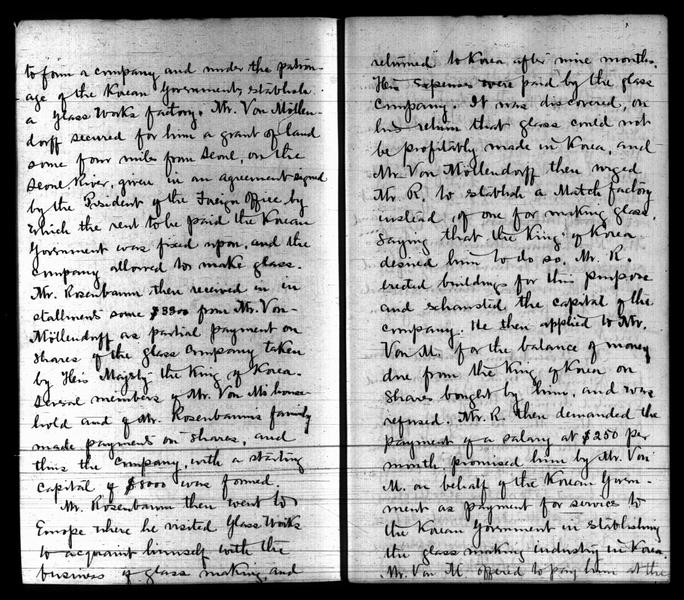 to form a company and under the patron-
age of the Korean Government, establish
a Glass Works Factory. Mr. Von Möllen-
dorff secured for him a grant of land
some four miles from Seoul, on the
Seoul River, given in an agreement signed
by the President of the Foreign Office by
which the rent to be paid the Korean
Government was fixed upon, and the
company allowed to make glass.
Mr. Rosenbaum then received in in
stallments some $3300 from Mr. Von-
Möllendorff as partial payment on
shares of the Glass Company taken
by His Majesty the King of Korea.
Several members of Mr. Von Ms house
hold and of Mr. Rosenbaum's family
made payments on shares, and
thus the company, with a starting
capital of $5000 was formed.
Mr. Rosenbaum then went to
Europe where he visited Glass Works
to acquaint himself with the
business of glass making, and
returned to Korea after nine months.
His expenses were paid by the glass
company. It was discovered, on
his return that glass could not
be profitably made in Korea, and
Mr Von Möllendorff then urged
Mr. R. to establish a Match factory
instead, of one for making glass.
Saying that the King of Korea
desired him to do so. Mr. R.
erected buildings for this purpose
and exhausted, the capital of the
company. He then applied to Mr.
Von M. for the balance of money
due from the King of Korea on
shares bought by him, and was
refused. Mr. R. then demanded the
payment of a salary at $250 per
month, promised him by Mr. Von
M. on behalf of the Korean Govern-
ment as payment for service to
the Korean Government in establishing
the glass making industry in Korea.
Mr. Von M. offered to pay him at the